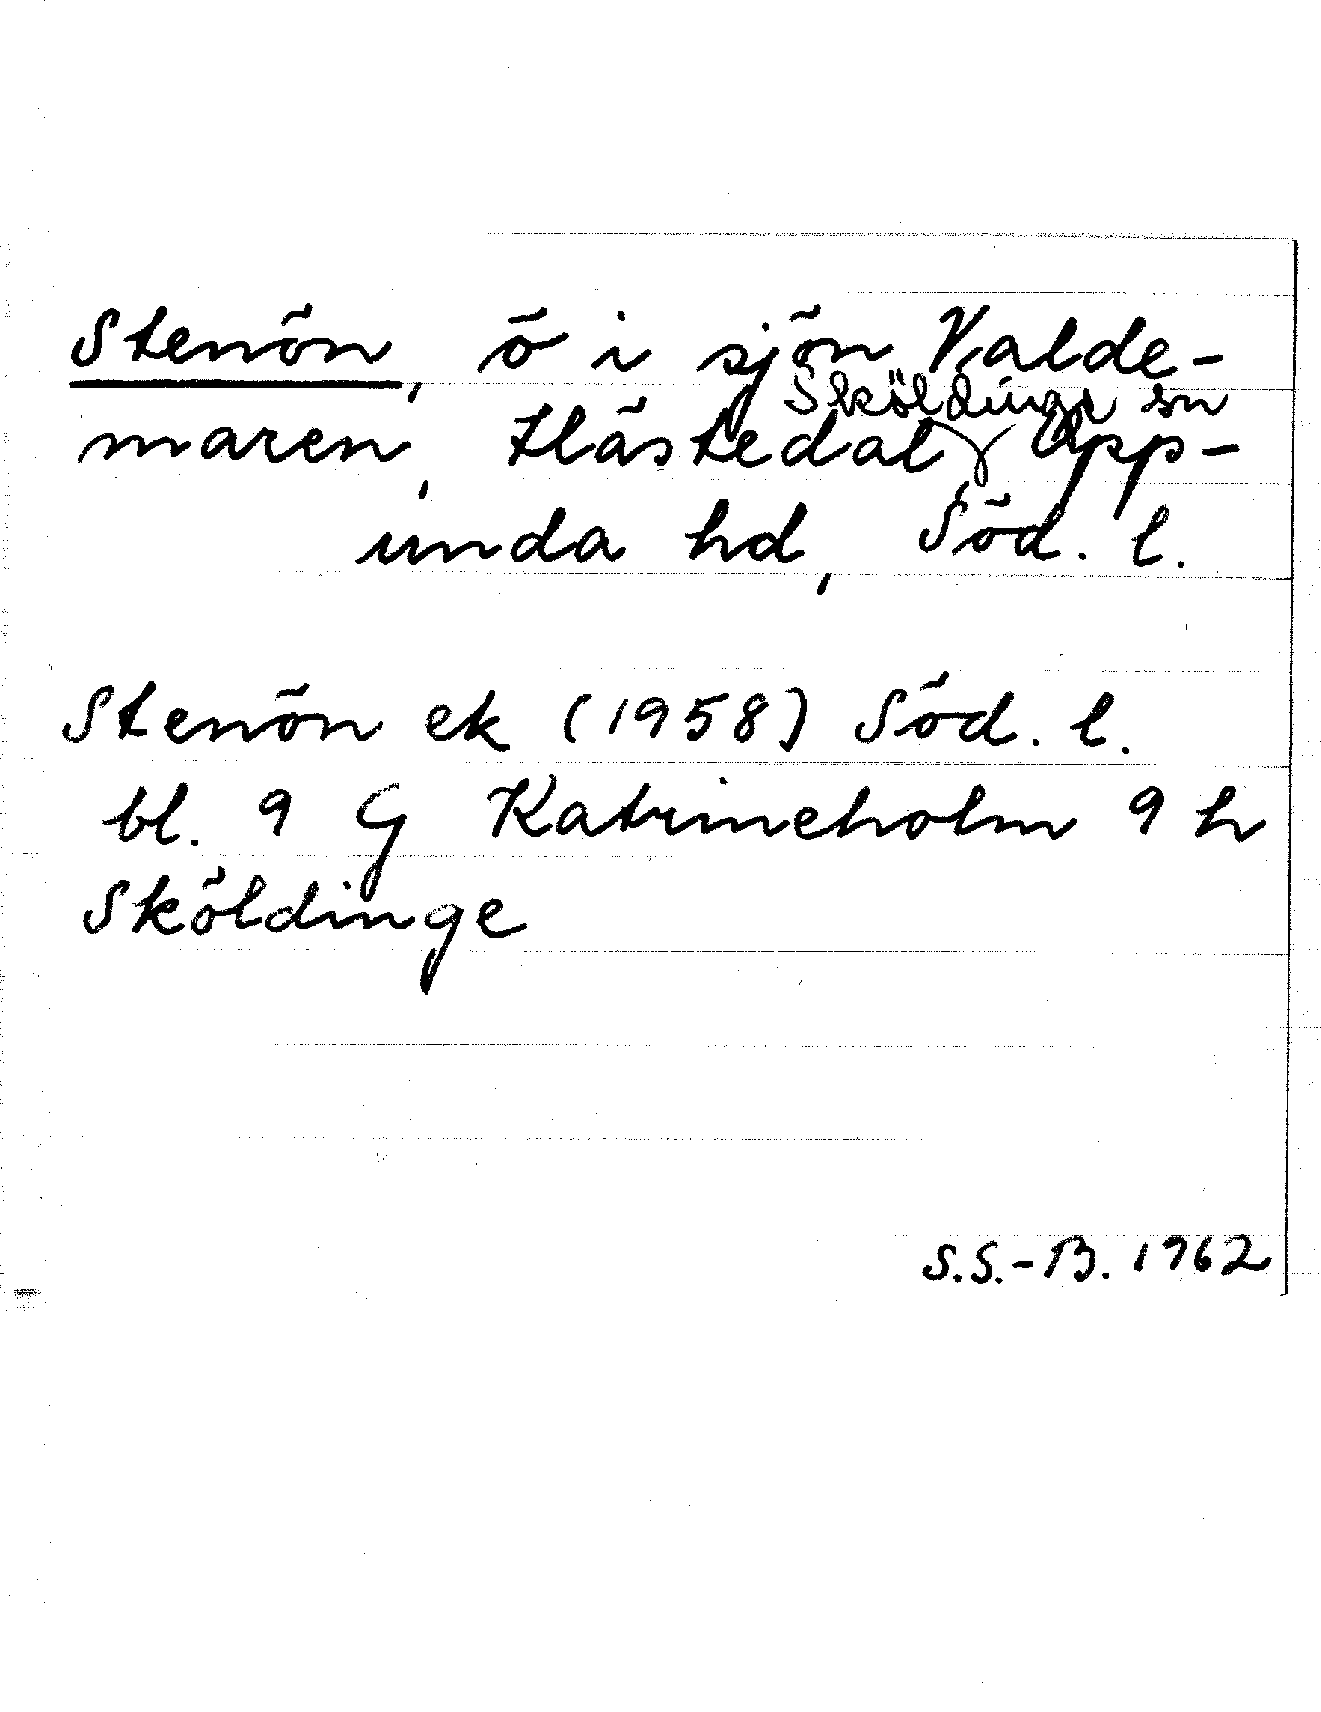 Stenön, ö i sjön Valde-
Sköldinge sn
maren, Hästedal, Opp-
unda hd, Söd. l.
Stenön ek (1958) Söd. l.
bl. 9 G Katrineholm 9 h
Sköldinge
S.S.-B. 1962